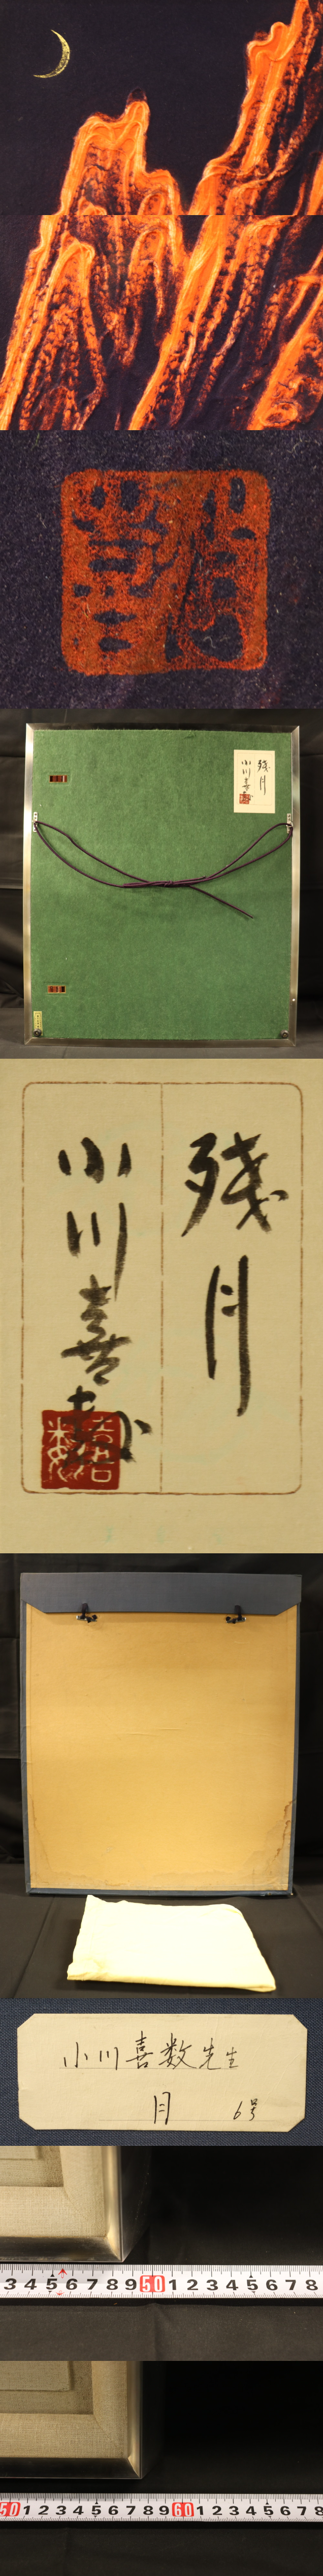 残月
小川喜数
喜数
残月
小川喜数
喜数
小川喜数先生
月 6号
3 4 5 6 7 8 9 50 1 2 3 4 5 6 7 8
50 1 2 3 4 5 6 7 8 9 60 1 2 3 4 5 6 7 8